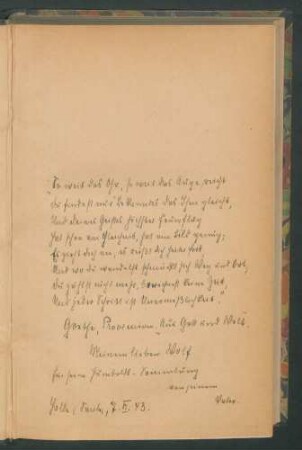 "So weit das Ohr, so weit das Auge reicht
Du findest nur Bekanntes das Ihm gleicht,
Und deines Geistes höchster Feuerflug
Hat schon am Gleichnis, hat am Bild genug;
Es zieht dich an, es reißt dich heiter fort,
Und wo du wandelst schmückt sich Weg und Ort,
Du zählst nicht mehr, berechnest keine Zeit,
Und jeder Schritt ist Unermeßlichkeit."
Goethe, Prooemion "Aus Gott und Welt"
Meinem lieben Wolf
für seine Humboldt-
von seinem
Vater.
Halle, Saale, 7. 43.